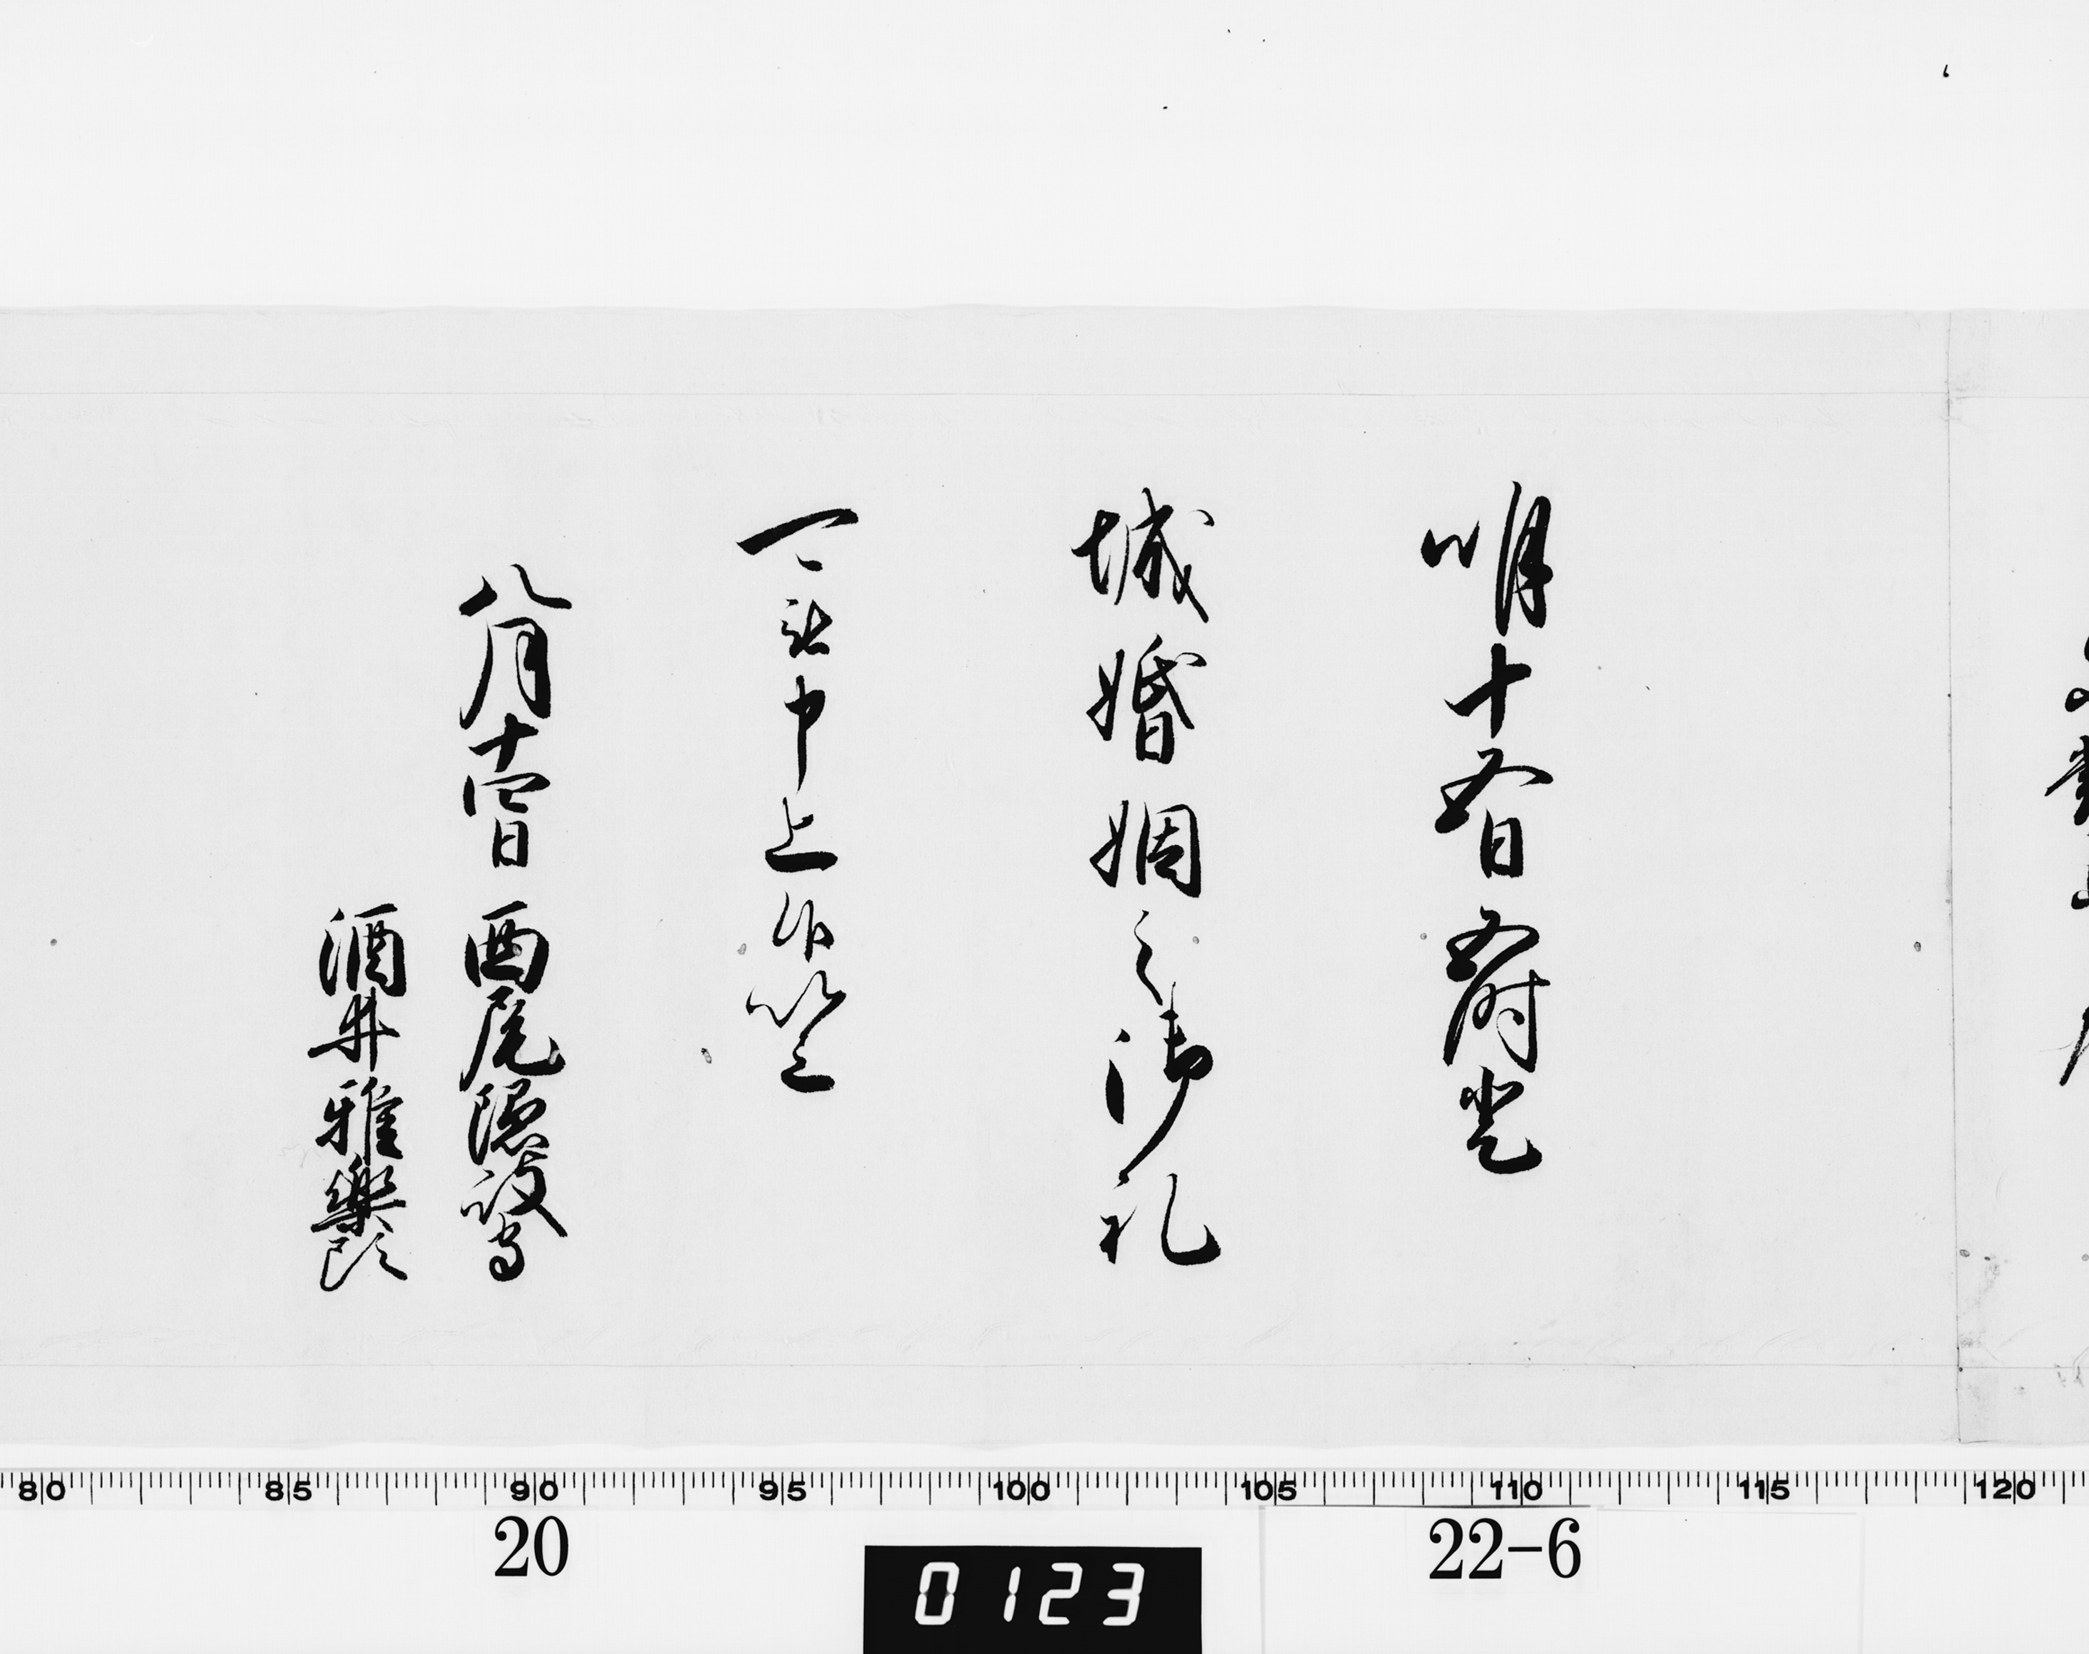 明十五日五時登
城婚姻之御礼
可被申上候以上
八月十四日 西尾隠岐守
酒井雅楽頭
80 85 90 95 100 105 110 115 120
20 22-6
0123